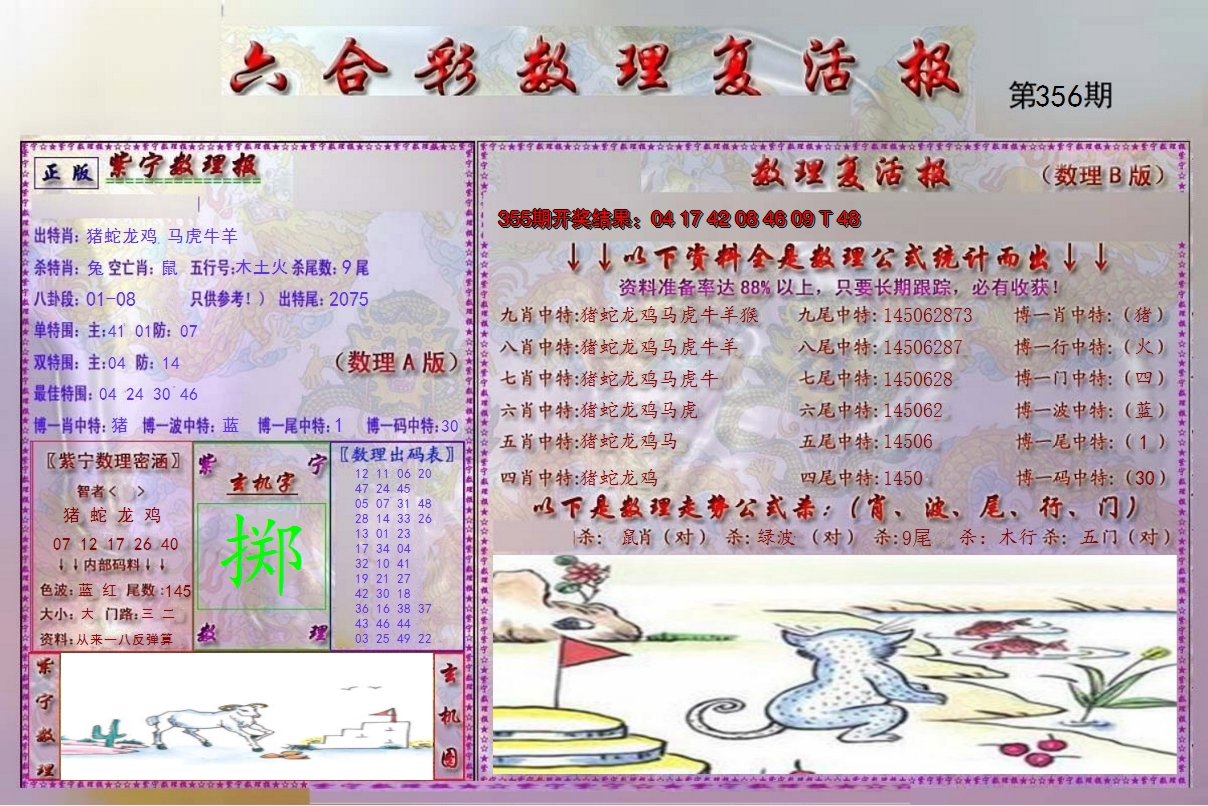 六合彩数理复活报
第356期
正版 紫宁数理报
出特肖: 猪蛇龙鸡 马虎牛羊
杀特肖: 兔 空亡肖: 鼠 五行号:木土火 杀尾数: 9 尾
八卦段: 01-08 只供参考!） 出特尾: 2075
单特围: 主:41 01防: 07
双特围: 主:04 防: 14
（数理A版）
最佳特围: 04 24 30 46
博一肖中特: 猪 博一波中特: 蓝 博一尾中特: 1 博一码中特:30
〖紫宁数理密涵〗
智者< >
猪 蛇 龙 鸡
07 12 17 26 40
↓↓内部码料↓↓
色波: 蓝 红 尾数:145
大小: 大 门路:三 二
资料:从来一八反弹算
紫 宁
玄机字
掷
数 理
〖数理出码表〗
12 11 06 20
47 24 45
05 07 31 48
28 14 33 26
13 01 23
17 34 04
32 10 41
19 21 27
42 30 18
36 16 38 37
43 46 44
03 25 49 22
紫宁数理
玄机图
数理复活报
（数理B版）
355期开奖结果: 04 17 42 08 46 09 T 48
↓↓以下资料全是数理公式统计而出↓↓
资料准备率达 88% 以上，只要长期跟踪，必有收获！
九肖中特:猪蛇龙鸡马虎牛羊猴 九尾中特: 145062873 博一肖中特:（猪）
八肖中特:猪蛇龙鸡马虎牛羊 八尾中特: 14506287 博一行中特:（火）
七肖中特:猪蛇龙鸡马虎牛 七尾中特: 1450628 博一门中特:（四）
六肖中特:猪蛇龙鸡马虎 六尾中特: 145062 博一波中特:（蓝）
五肖中特:猪蛇龙鸡马 五尾中特: 14506 博一尾中特:（1）
四肖中特:猪蛇龙鸡 四尾中特: 1450 博一码中特:（30）
以下是数理走势公式杀:（肖、波、尾、行、门）
杀: 鼠肖（对） 杀: 绿波 （对） 杀:9尾 杀: 木行 杀: 五门（对）